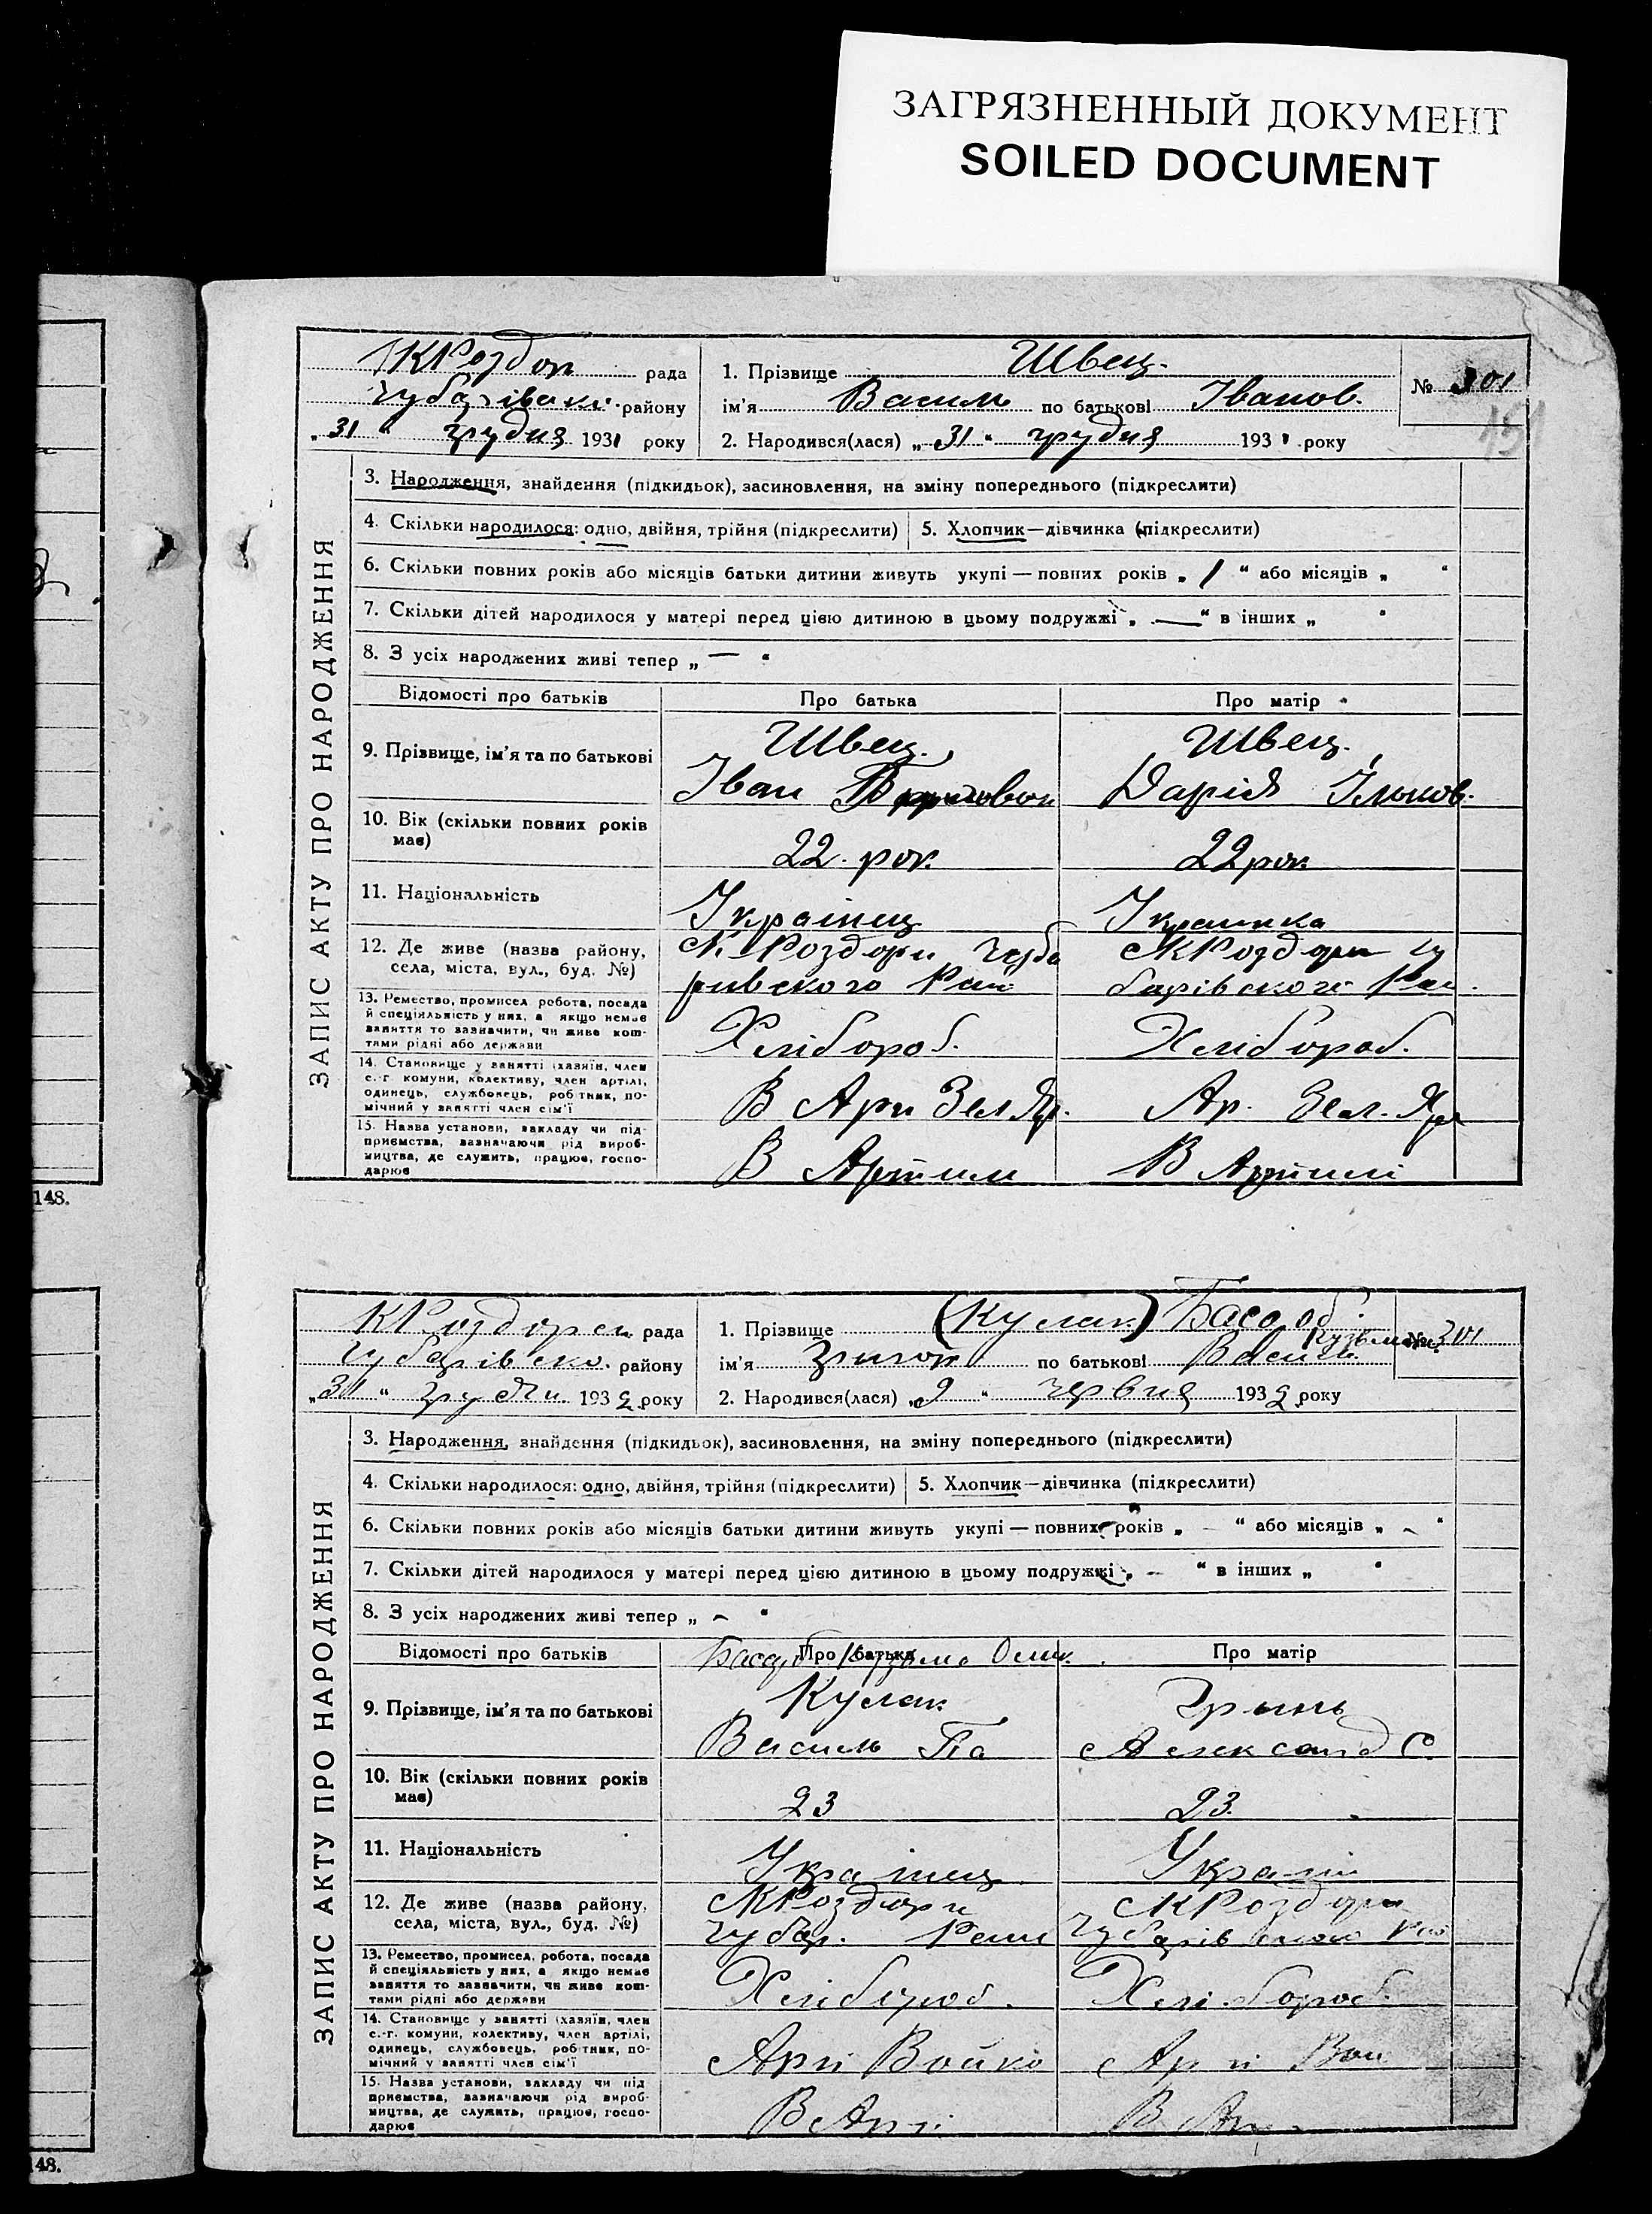 ЗАГРЯЗНЕННЫЙ ДОКУМЕНТ
SOILED DOCUMENT
рада
району
„31“ грудня 1931 року
1. Прізвище Швец.
ім'я Василь по батькові Іванов.
2. Народився(лася) „31“ грудня 193 року
№ 301
ЗАПИС АКТУ ПРО НАРОДЖЕННЯ
3. Народження, знайдення (підкидьок), засиновлення, на зміну попереднього (підкреслити)
4. Скільки народилося: одно, двійня, трійня (підкреслити)
5. Хлопчик—дівчинка (підкреслити)
6. Скільки повних років або місяців батьки дитини живуть укупі — повних років „ / “ або місяців „ “
7. Скільки дітей народилося у матері перед цією дитиною в цьому подружжі „ — “ в інших „ “
8. З усіх народжених живі тепер „ — “
Відомості про батьків
Про батька
Про матір
9. Прізвище, ім'я та по батькові
Швец.
Іван
Швец.
Дарія Ільков.
10. Вік (скільки повних років
має)
22. рок
22 рок
11. Національність
Українец
Украинка
12. Де живе (назва району,
села, міста, вул., буд. №)
К Роздори Чуба
ривского Рай
К Роздори Чу
барівского Рай.
13. Ремество, промисел робота, посада
й спеціяльність у них, а якщо немає
заняття то зазначити, чи живе кош-
тами рідні або держави
Хлібороб.
Хлібороб.
14. Становище у занятті (хазяїн, член
с.-г. комуни, колективу, член артілі,
одинець, службовець, робітник, по-
мічний у занятті член сім'ї
В Арт Зел Яр.
Ар. Зел. Яр
15. Назва установи, закладу чи під-
приємства, зазначаючи рід вироб-
ництва, де служить, працює, госпо-
дарює
В Артили
В Артилі
148.
рада
району
193 2 року
1. Прізвище (Кулак)
ім'я по батькові
2. Народився(лася) „9“ червня 193 2 року
№ 301
ЗАПИС АКТУ ПРО НАРОДЖЕННЯ
3. Народження, знайдення (підкидьок), засиновлення, на зміну попереднього (підкреслити)
4. Скільки народилося: одно, двійня, трійня (підкреслити)
5. Хлопчик—дівчинка (підкреслити)
6. Скільки повних років або місяців батьки дитини живуть укупі — повних років „ – “ або місяців „ – “
7. Скільки дітей народилося у матері перед цією дитиною в цьому подружжі „ – “ в інших „ “
8. З усіх народжених живі тепер „ – “
Відомості про батьків
Про батька
Про матір
9. Прізвище, ім'я та по батькові
Кулак
Василь Па
Гринь
Александ С.
10. Вік (скільки повних років
має)
23
23.
11. Національність
Українец
Україн
12. Де живе (назва району,
села, міста, вул., буд. №)
К Роздори
Чубар. Рай
К Роздори
Чубарівского
13. Ремество, промисел, робота, посада
й спеціяльність у них, а якщо немає
заняття то зазначити, чи живе кош-
тами рідні або держави
Хлібороб.
Хлібороб.
14. Становище у занятті (хазяїн, член
с.-г. комуни, колективу, член артілі,
одинець, службовець, робітник, по-
мічний у занятті член сім'ї
Арті Войко
Арті Вой
15. Назва установи, закладу чи під
приємства, зазначаючи рід вироб-
ництва, де служить, працює, госпо-
дарює
В Арті
В Арт
48.